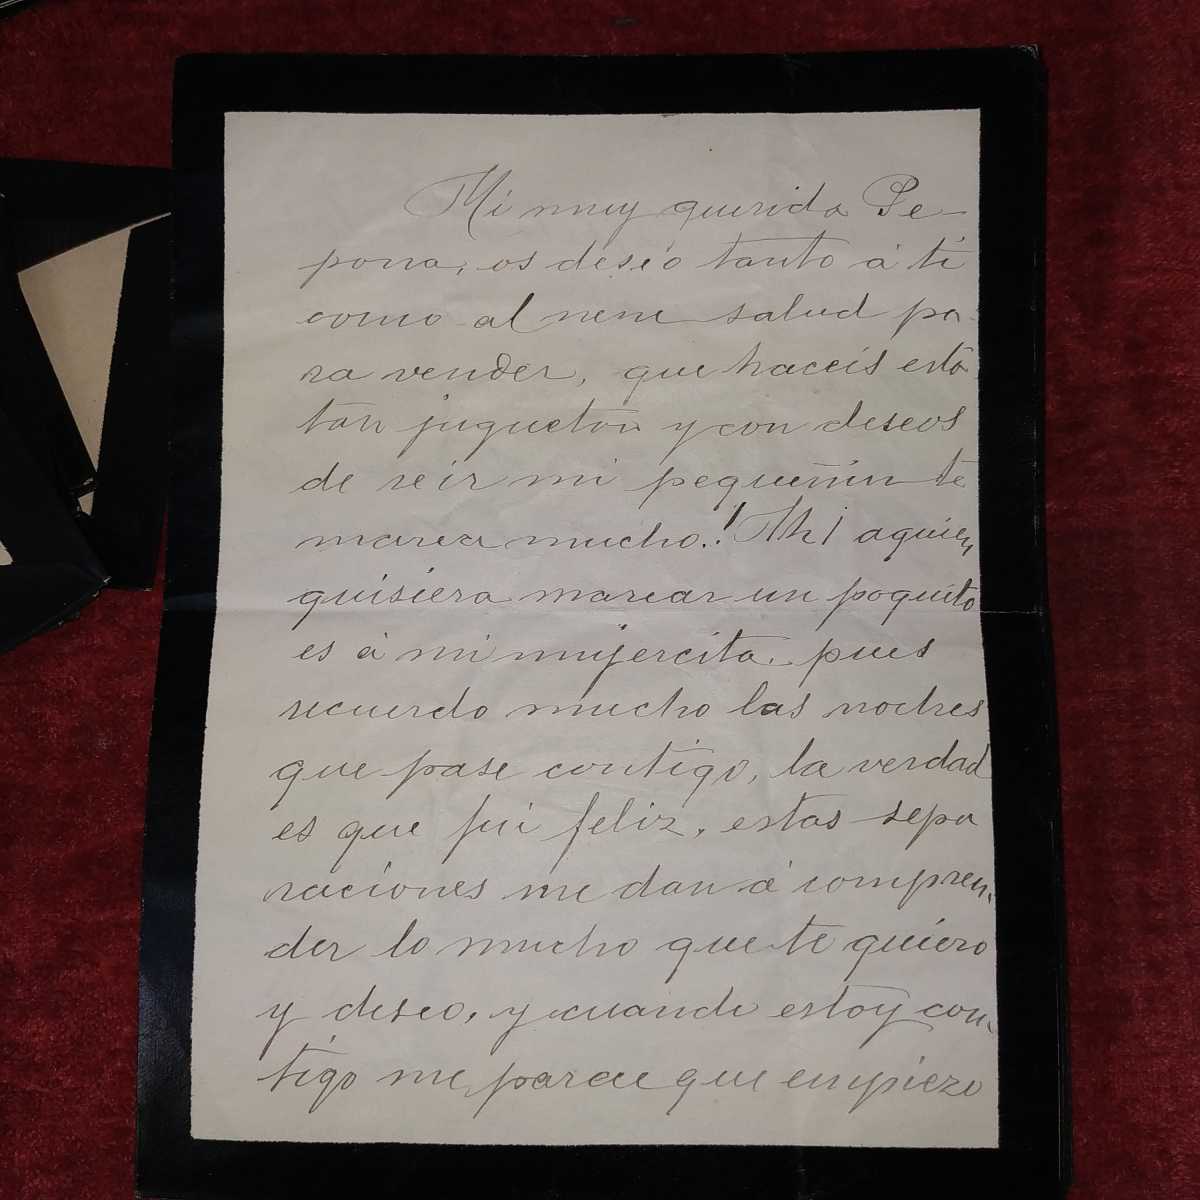 Mi muy querida Pe-
pona, os deseo tanto á ti
como al nene salud pa-
ra vender, que haceis está
tan jugueton y con deseos
de reir mi pequeñin te
marea mucho.! Ah! aquien
quisiera marear un poquito
es á mi mujercita. pues
recuerdo mucho las noches
que pase contigo, la verdad
es que fui feliz, estas sepa
raciones me dan á compren-
der lo mucho que te quiero
y deseo, y cuando estoy con-
tigo me parece que empiezo